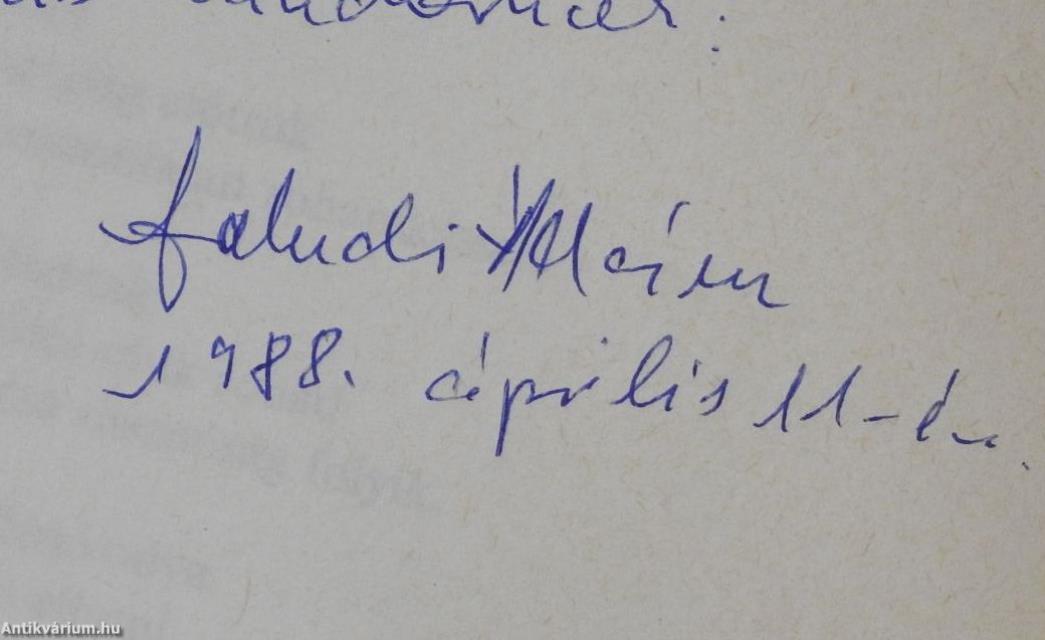 Faludi Ádám
1988. április 11-én.
Antikvárium.hu